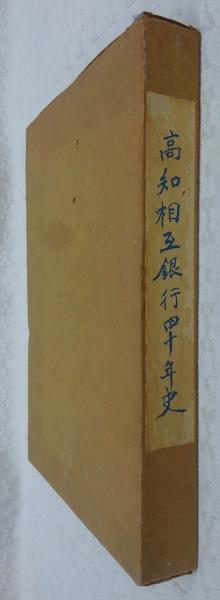 高知相互銀行四十年史